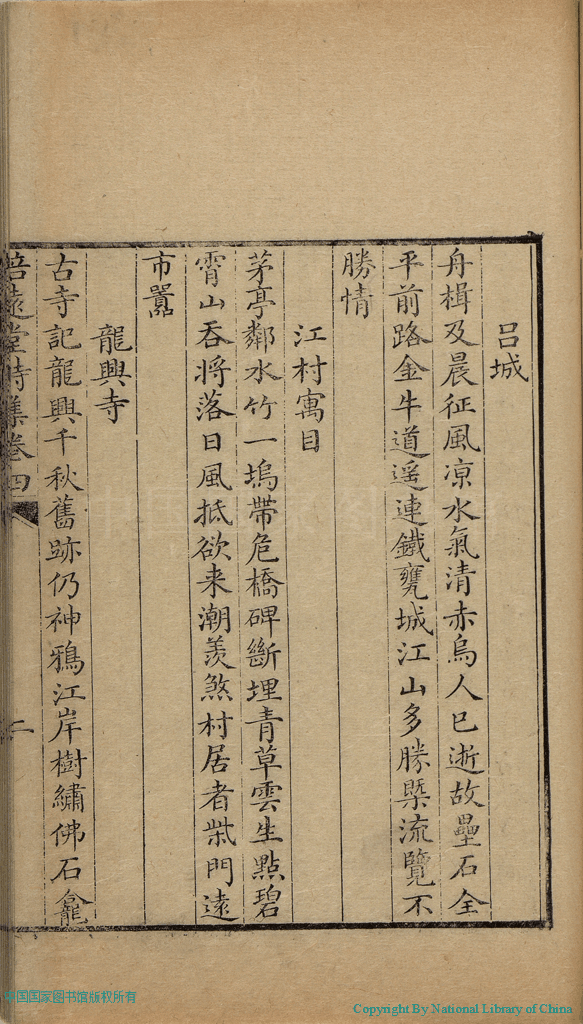 吕城
舟楫及晨征風凉水氣清赤烏人已逝故壘石全
平前路金牛道遥連鐵甕城江山多勝槩流覽不
勝情
江村寓目
茅亭鄰水竹一塢帶危橋碑斷埋青草雲生點碧
霄山吞將落日風抵欲来潮羨煞村居者柴門遠
市囂
龍興寺
古寺記龍興千秋舊跡仍神鴉江岸樹繡佛石龕
培遠堂詩集卷四
二
中国国家图书馆版权所有
Copyright By National Library of China